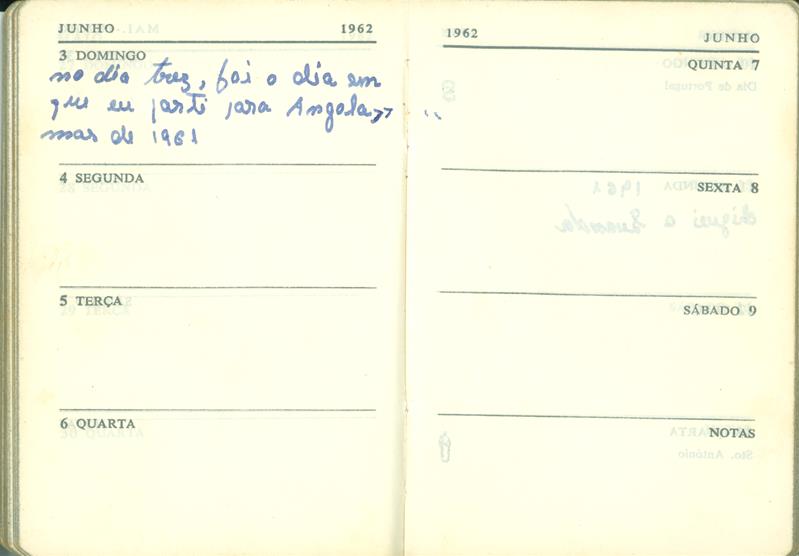 JUNHO 1962
3 DOMINGO
no dia trez, foi o dia em
que eu parti para Angola,
mas de 1961
4 SEGUNDA
5 TERÇA
6 QUARTA
1962 JUNHO
QUINTA 7
SEXTA 8
SÁBADO 9
NOTAS